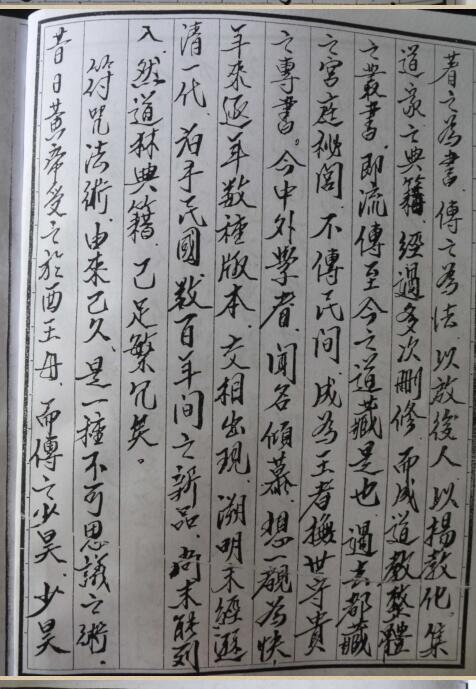 著之為書，傳之為法，以啟後人，以揚教化，集
道家之典籍，經過多次刪修，而成道教整體
之叢書，即流傳至今之道藏是也，過去都藏
之宮庭秘閣，不傳民間，成為王者撫世守貴
之專書。今中外學者，聞名傾慕，想一觀為快，
年來逐年數種版本，交相出現，溯明末經遜
清一代，治于民國，數百年間之新品，尚未能列
入，然道林典籍，已足繁冗矣。
符咒法術，由來已久，是一種不可思議之術，
昔日黃帝受之於西王母，而傳之少昊，少昊